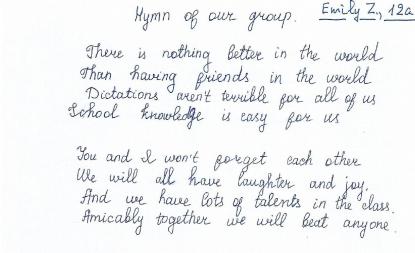 Hymn of our group.
Emily Z., 12a
There is nothing better in the world
Than having friends in the world
Dictations aren't terrible for all of us
School knowledge is easy for us
You and I won't forget each other
We will all have laughter and joy.
And we have lots of talents in the class.
Amicably together we will beat anyone.